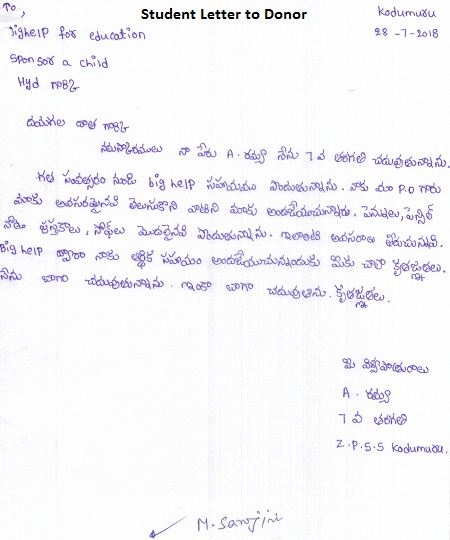 Student Letter to Donor
To,
Kodumuru
bighelp for education
28-7-2018
Sponsor a child
Hyd గారికి
దయగల దాత గారికి
నమస్కారములు నా పేరు A. రమ్య నేను 7 వ తరగతి చదువుతున్నాను.
గత సంవత్సరం నుండి bighelp సహాయము పొందుతున్నాను. నాకు మా P.O గారు
మాకు అవసరమైనవి తెలుసుకొని వాటిని మాకు అందజేయుచున్నారు. పెన్నులు, పెన్సిల్
నోటు పుస్తకాలు, సోప్‌లు మొదలైనవి పొందుతున్నాను. ఇలాంటి అవసరాలు తీరుచున్నవి.
Big help ద్వారా నాకు ఆర్థిక సహాయం అందజేయుచున్నందుకు మీకు చాలా కృతజ్ఞతలు.
నేను బాగా చదువుతున్నాను. ఇంకా బాగా చదువుతాను. కృతజ్ఞతలు.
మీ విశ్వాసపాత్రురాలు
A. రమ్య
7 వ తరగతి
Z.P.S.S Kodumuru.
M. Sarojini